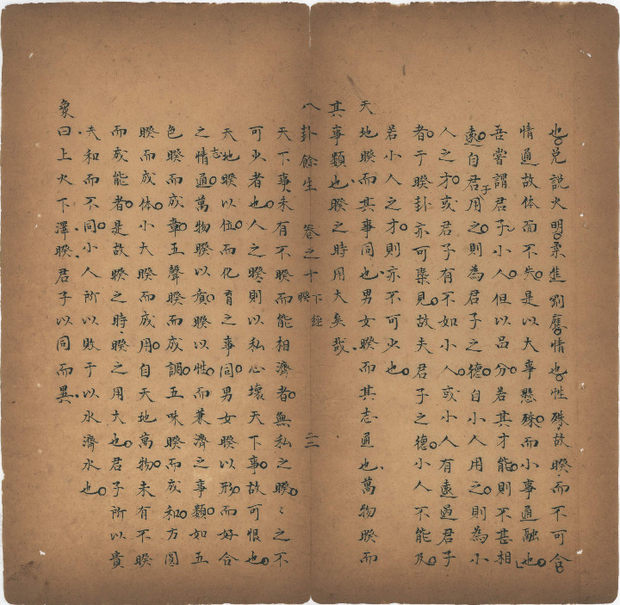 也兌說火明柔進剛應情也性殊故睽而不可合
情通故体面不失是以大事懸殊而小事通融也
吾嘗謂君子小人但以品分若其才能則不甚相
遠自君子用之則為君子之德自小人用之則為小
人之才或君子有不如小人或小人有遠過君子
者于睽卦亦可槩見故夫君子之德小人不能及
若小人之才則亦不可少也
天地睽而其事同也男女睽而其志通也萬物睽而
其事類也睽之時用大矣哉
八卦餘生 卷之十 下經 睽 二二
天下事未有不睽而能相濟者無私之睽睽之不
可少者也人之睽則以私心壞天下事故可恨也
天地睽以位而化育之事同男女睽以形而好合
之情志通萬物睽以質睽以性而兼濟之事類如五
色睽而成章五聲睽而成調五味睽而成和方圓
睽而成体小大睽而成用自天地萬物未有不睽
而成能者是故睽之時睽之用大也君子所以貴
夫和而不同小人所以敗于以水濟水也
象曰上火下澤睽君子以同而異